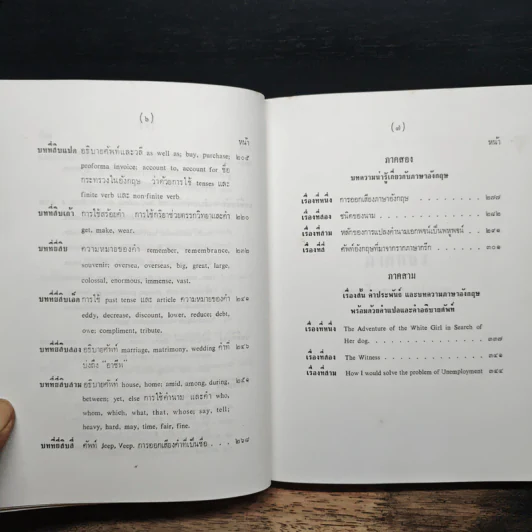 (๖)
หน้า
บทที่สิบแปด อธิบายศัพท์และวลี as well as; buy, purchase; ๒๐๕
proforma invoice; account to, account for ชื่อ
กระทรวงในอังกฤษ ว่าด้วยการใช้ tenses และ
finite verb และ non-finite verb.
บทที่สิบเก้า การใช้สร้อยคำ การใช้กริยาช่วยดรรกวิทยาและคำ ๒๒๐
get, make, wear.
บทที่ยี่สิบ ความหมายของคำ remember, remembrance, ๒๓๒
souvenir; oversea, overseas, big, great, large,
colossal, enormous, immense, vast.
บทที่ยี่สิบเอ็ด การใช้ past tense และ article ความหมายของคำ ๒๔๑
eddy, decrease, discount, lower, reduce; debt,
one; compliment, tribute.
บทที่ยี่สิบสอง อธิบายศัพท์ marriage, matrimony, wedding คำที่ ๒๔๖
บ่งถึง "อาชีพ"
บทที่ยี่สิบสาม อธิบายศัพท์ house, home; amid, among, during, ๒๕๑
between; yet, else การใช้คำนาม และคำ who,
whom, which, what, that, whose; say, tell;
heavy, hard, may, time, fair, fine.
บทที่ยี่สิบสี่ ศัพท์ Jeep, Veep. การออกเสียงคำที่เป็นชื่อ . . . ๒๖๘
(๗)
หน้า
ภาคสอง
บทความน่ารู้เกี่ยวกับภาษาอังกฤษ
เรื่องที่หนึ่ง การออกเสียงภาษาอังกฤษ ๒๗๗
เรื่องที่สอง ชนิดของนาม ๒๘๒
เรื่องที่สาม หลักของการแปลงคำนามเอกพจน์เป็นพหูพจน์ ๒๙๑
เรื่องที่สี่ ศัพท์อังกฤษที่มาจากรากภาษากรีก ๓๐๑
ภาคสาม
เรื่องสั้น คำประพันธ์ และบทความภาษาอังกฤษ
พร้อมด้วยคำแปลและคำอธิบายศัพท์
เรื่องที่หนึ่ง The Adventure of the White Girl in Search of
Her dog. ๓๓๗
เรื่องที่สอง The Witness ๓๔๑
เรื่องที่สาม How I would solve the problem of Unemployment ๓๔๔